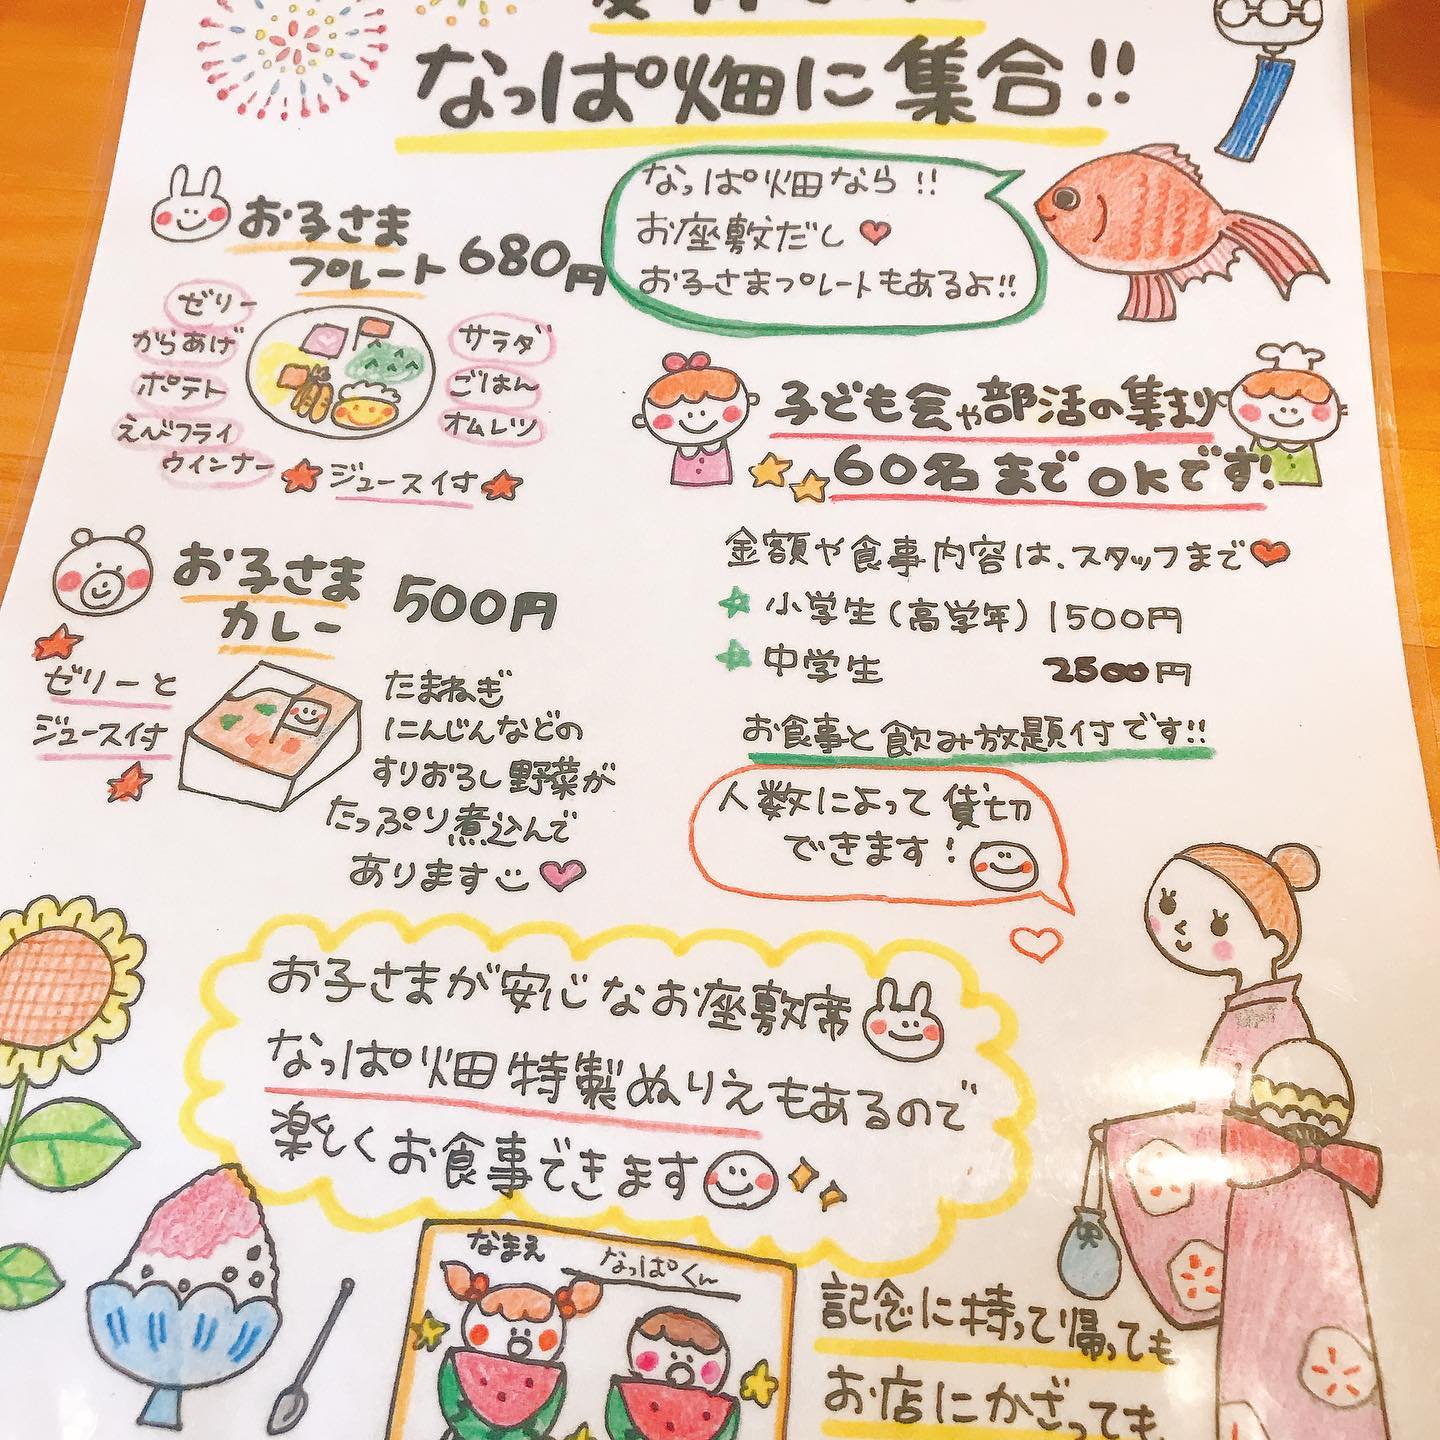 なっぱ畑に集合!!
なっぱ畑なら!!
お座敷だし
お子さまプレートもあるよ!!
お子さま
プレート 680円
ゼリー
からあげ
ポテト
えびフライ
ウインナー
サラダ
ごはん
オムレツ
ジュース付
子ども会や部活の集まり
60名までOKです!
金額や食事内容は、スタッフまで
小学生(高学年) 1500円
中学生 2500円
お食事と飲み放題付です!!
人数によって貸切
できます!
お子さま
カレー 500円
ゼリーと
ジュース付
たまねぎ
にんじんなどの
すりおろし野菜が
たっぷり煮込んで
あります
お子さまが安心なお座敷席
なっぱ畑特製ぬりえもあるので
楽しくお食事できます
なまえ なっぱくん
記念に持って帰っても
お店にかざっても